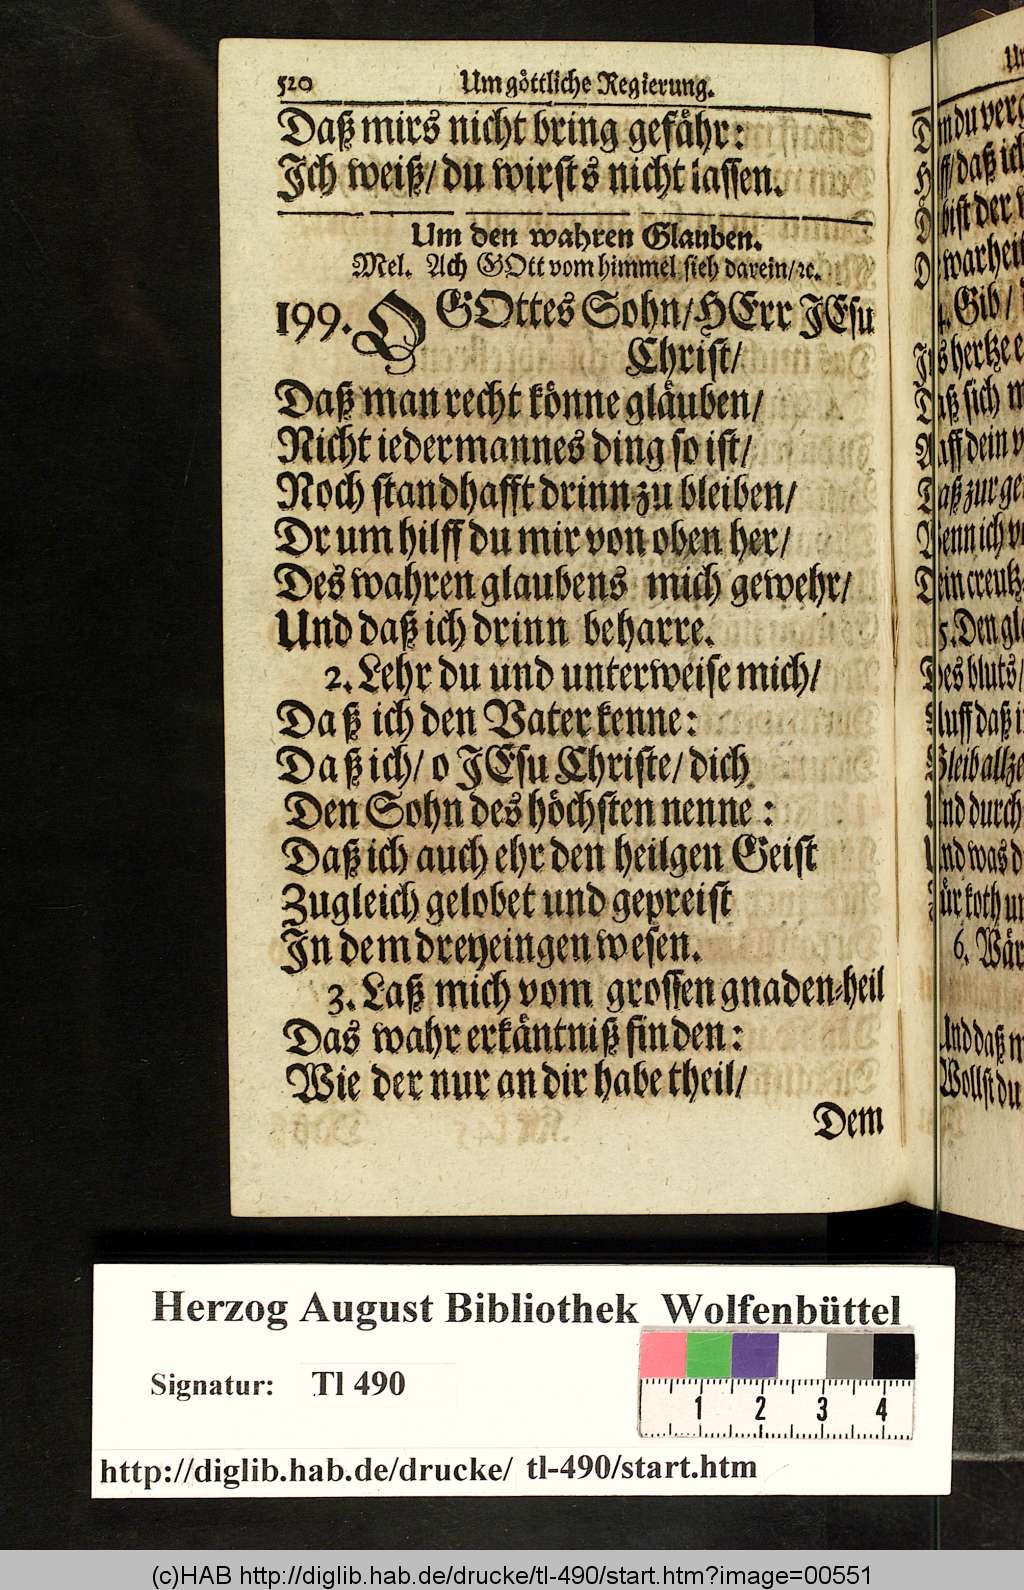 520 Um göttliche Regierung.
Daß mirs nicht bring gefåhr:
Ich weiß/ du wirsts nicht lassen.
Um den wahren Glauben.
Mel. Ach GOtt vom himmel sieh darein/ꝛc.
199. O GOttes Sohn/ HErr JEsu
Christ/
Daß man recht könne gläuben/
Nicht iedermannes ding so ist/
Noch standhafft drinn zu bleiben/
Drum hilff du mir von oben her/
Des wahren glaubens mich gewehr/
Und daß ich drinn beharre.
2. Lehr du und unterweise mich/
Daß ich den Vater kenne:
Daß ich/ o JEsu Christe/ dich
Den Sohn des höchsten nenne:
Daß ich auch ehr den heilgen Geist
Zugleich gelobet und gepreist
In dem dreyeingen wesen.
3. Laß mich vom grossen gnaden-heil
Das wahr erkäntniß finden:
Wie der nur an dir habe theil/
Dem
Dm du verg
ff/ daß ich
bist der
warheit
4. Gib/
Ins hertze
Daß sich
Auff dein
Daß zur
Wenn ich
Dein creutz
5. Den
Des bluts/
Auff daß
Bleib allze
Und durch
Und was
Für koth
6. Wär
Und daß
Wollst du
Herzog August Bibliothek Wolfenbüttel
Signatur: Tl 490
1 2 3 4
http://diglib.hab.de/drucke/ tl-490/start.htm
(c)HAB http://diglib.hab.de/drucke/tl-490/start.htm?image=00551